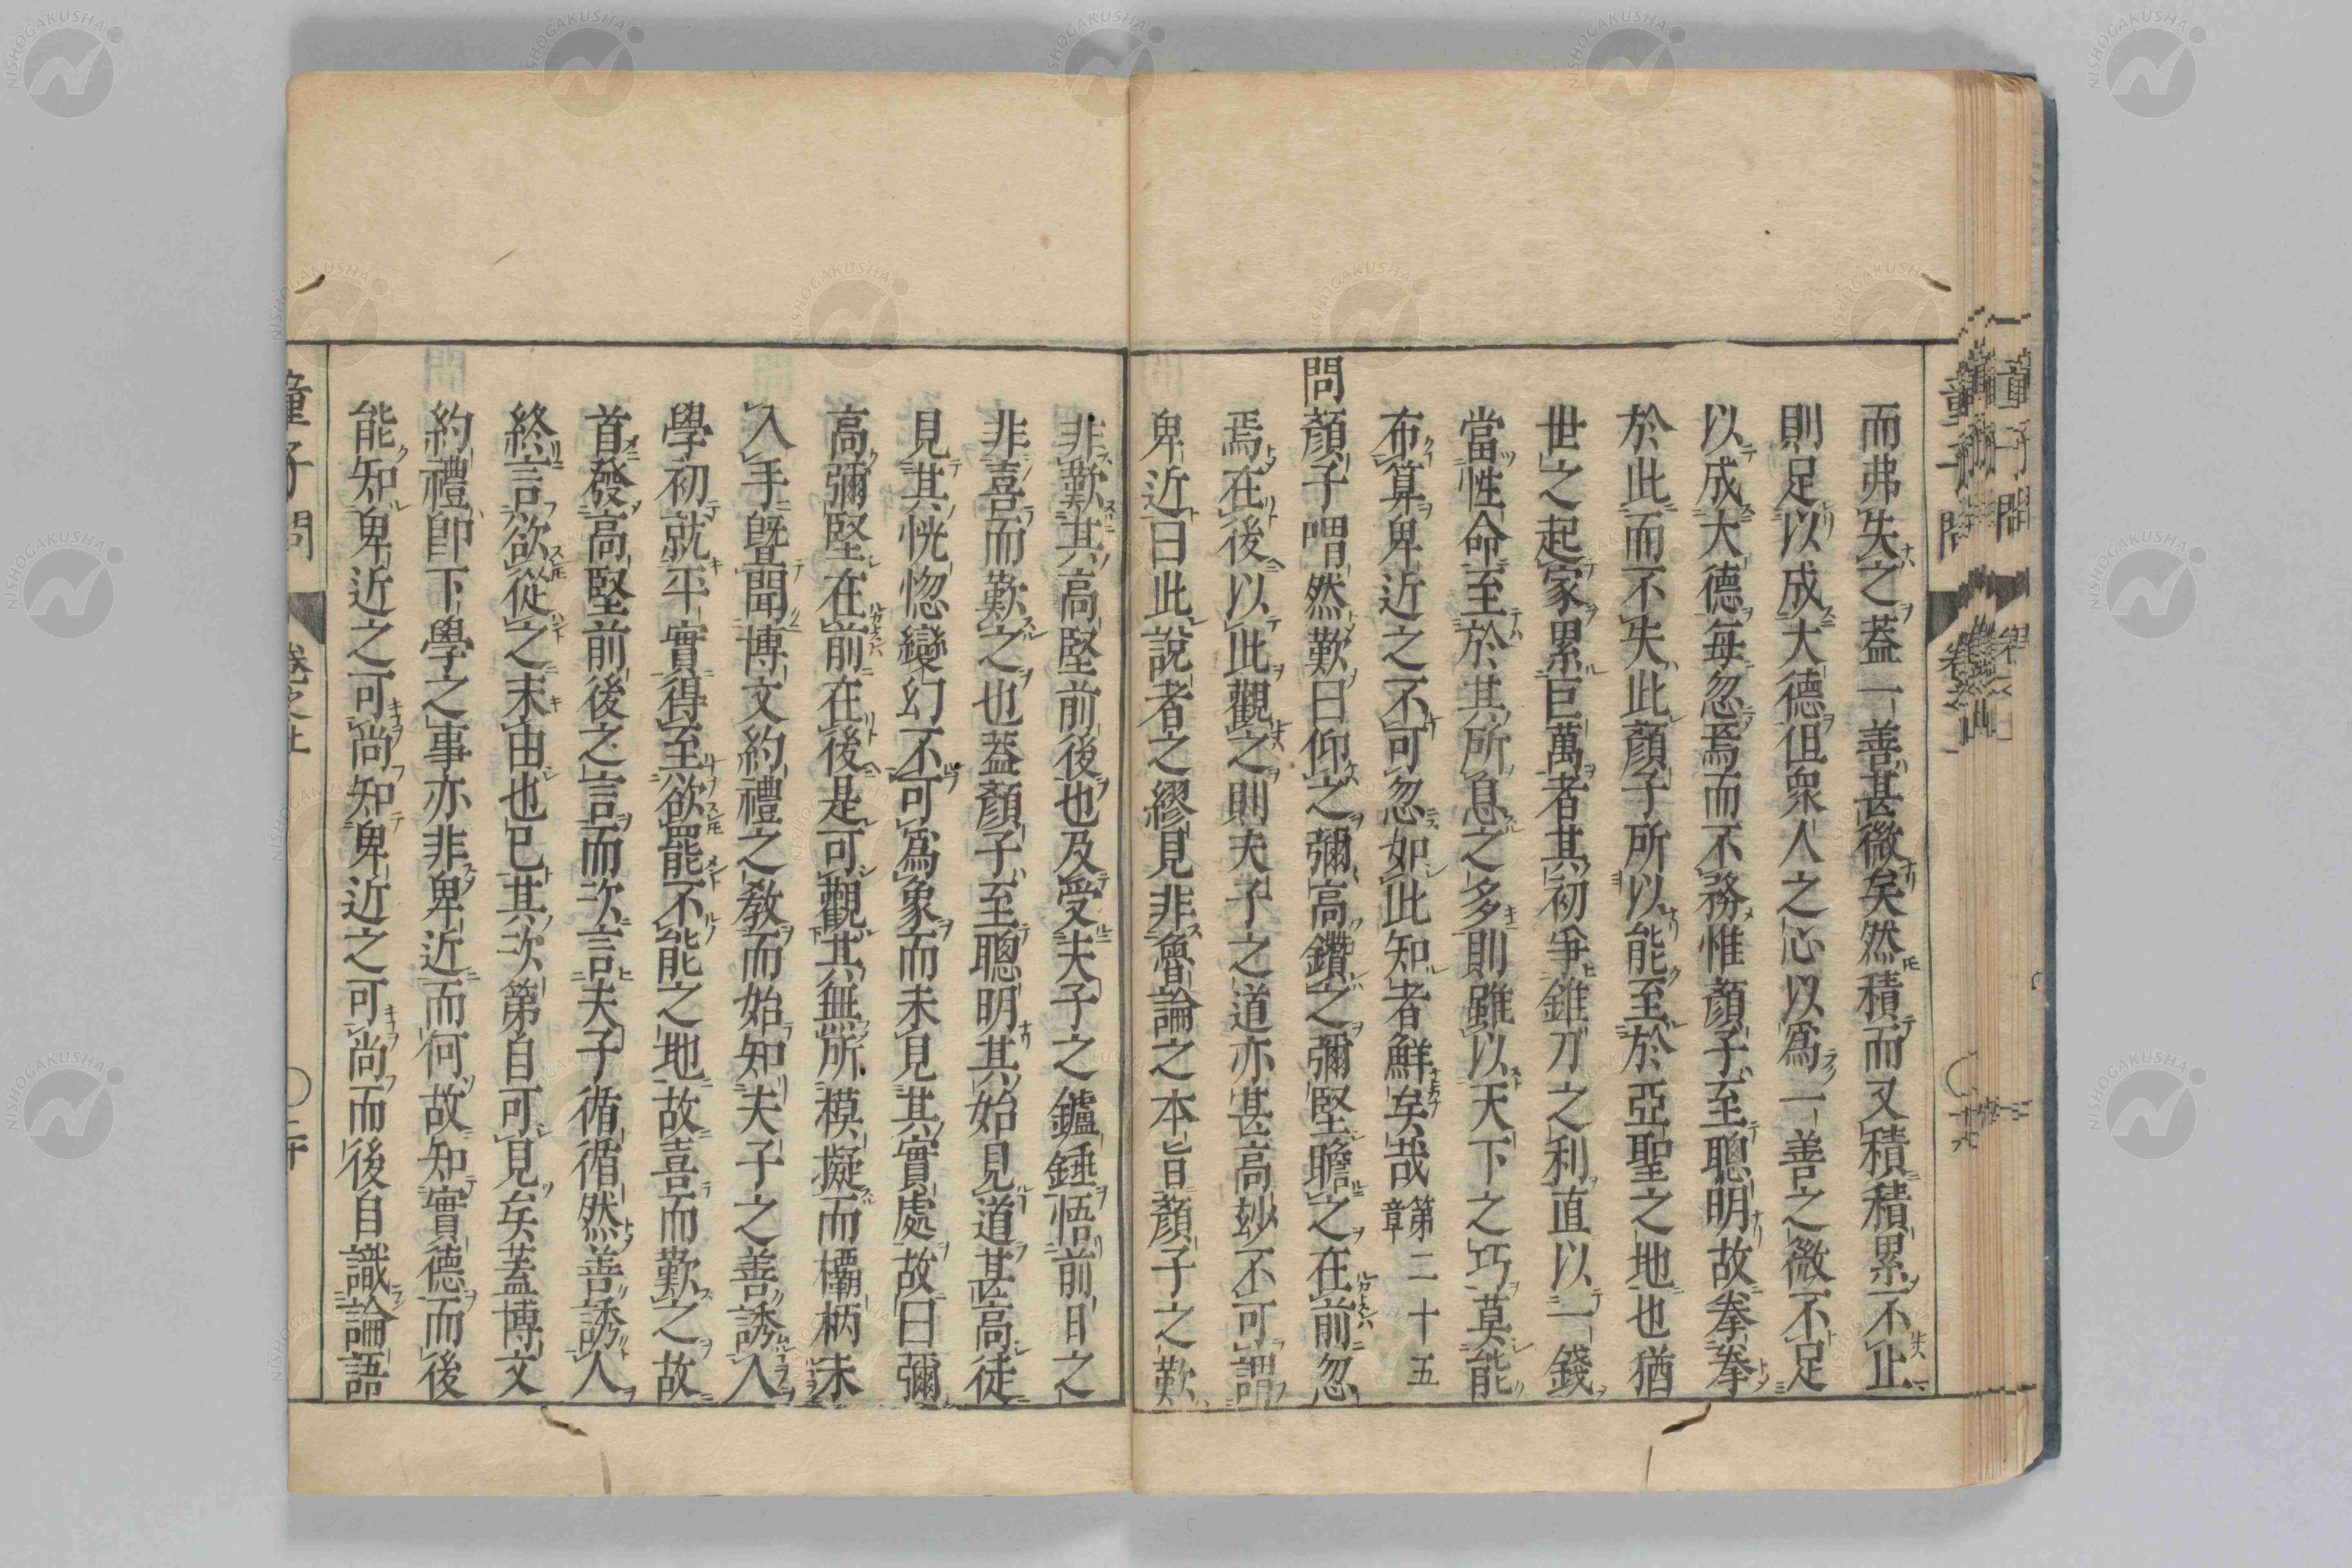 而弗失之蓋一善甚微矣然積而又積積累不止
則足以成大德但衆人之心以爲一善之微不足
以成大德每忽焉而不務惟顏子至聰明故拳拳
於此而不失此顏子所以能至於亞聖之地也猶
世之起家累巨萬者其初爭錐刀之利直以一錢
當性命至於其所息之多則雖以天下之巧莫能
布算卑近之不可忽如此知者鮮矣哉 第二十五章
問顏子喟然歎曰仰之彌高鑽之彌堅瞻之在前忽
焉在後以此觀之則夫子之道亦甚高玅不可謂
卑近曰此說者之繆見非魯論之本旨顏子之歎
非歎其高堅前後也及受夫子之鑪錘悟前日之
非喜而歎之也蓋顏子至聰明其始見道甚高徒
見其恍惚變幻不可爲象而未見其實處故曰彌
高彌堅在前在後是可觀其無所模擬而欛柄未
入手曁聞博文約禮之敎而始知夫子之善誘人
學初就平實得至欲罷不能之地故喜而歎之故
首發高堅前後之言而次言夫子循循然善誘人
終言欲從之末由也已其次第自可見矣蓋博文
約禮卽下學之事亦非卑近而何故知實德而後
能知卑近之可尚知卑近之可尚而後自識論語
童子問 卷之上